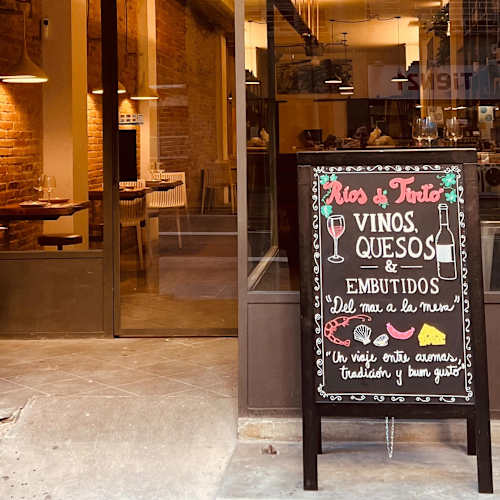 Ríos & Tinto
VINOS,
QUESOS
&
EMBUTIDOS
"Del mar a la mesa"
"Un viaje entre aromas,
tradición y buen gusto"